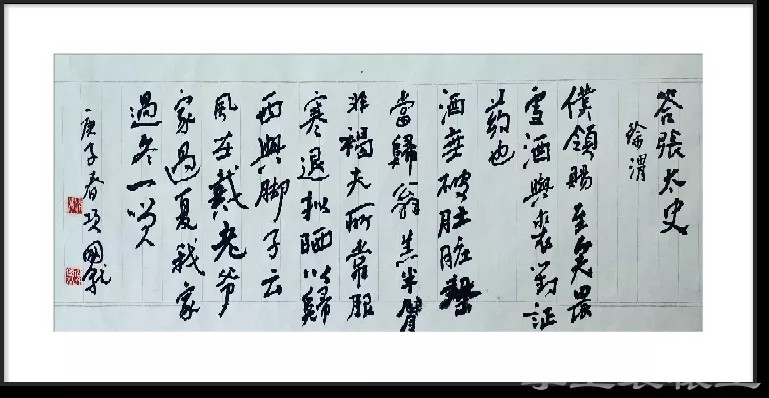 答張太史
徐渭
僕領賜至矣晨
雪酒與裘對証
藥也
酒無破肚脏罄
當歸瓮羔半臂
非褐夫所常服
寒退拟晒以歸
西興脚子云
風在戴老爷
家過夏我家
過冬一笑
庚子春項國